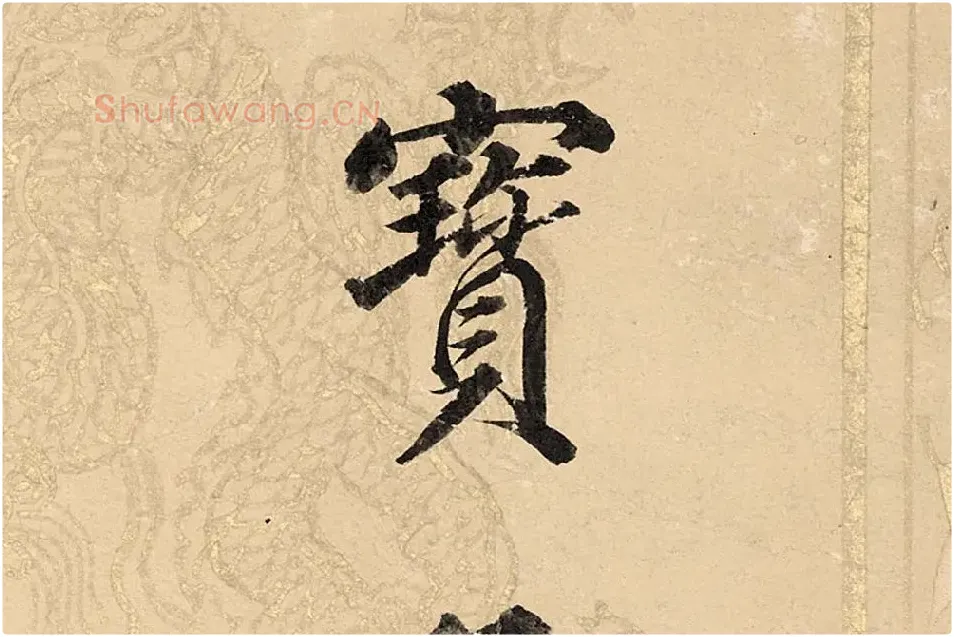 Shufawang.CN
寳